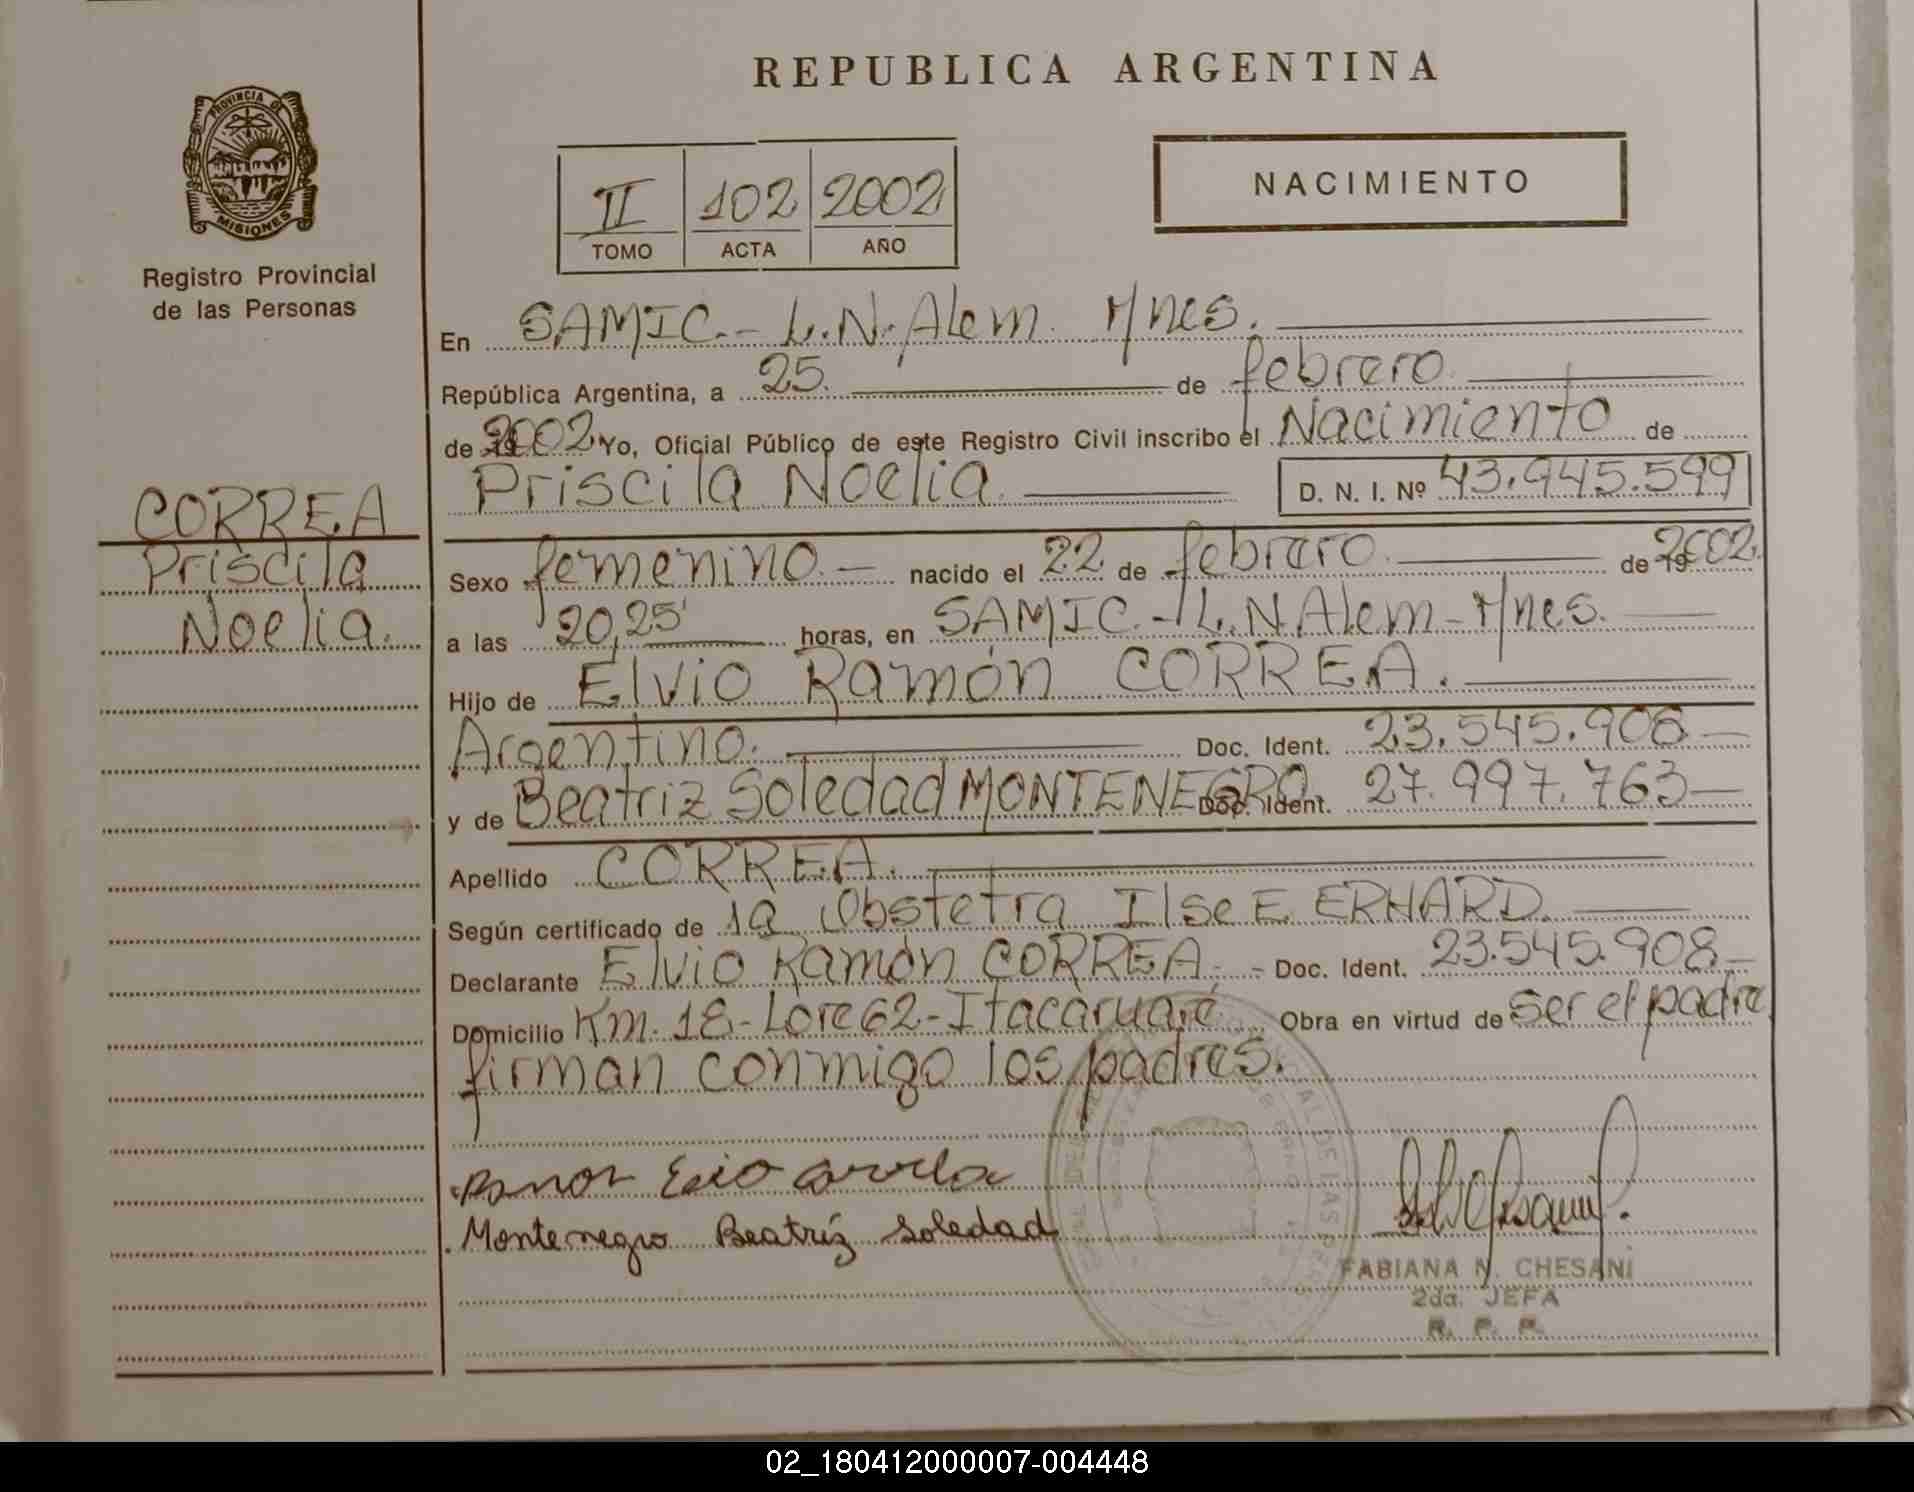 REPUBLICA ARGENTINA
PROVINCIA DE MISIONES
Registro Provincial
de las Personas
II 102 2002
TOMO ACTA AÑO
NACIMIENTO
En SAMIC.- L.N. Alem. M/nes.
República Argentina, a 25. de febrero.
de 2002 Yo, Oficial Público de este Registro Civil inscribo el Nacimiento de
Priscila Noelia. D. N. I. Nº 43.945.599
CORREA
Priscila
Noelia.
Sexo femenino.- nacido el 22 de febrero. de 2002.
a las 20,25' horas, en SAMIC.- L.N. Alem - M/nes.
Hijo de Elvio Ramón CORREA.
Argentino. Doc. Ident. 23.545.908-
y de Beatriz Soledad MONTENEGRO. Doc. Ident. 27.997.763-
Apellido CORREA.
Según certificado de la Obstetra Ilse E. ERHARD.
Declarante Elvio Ramón CORREA. - Doc. Ident. 23.545.908-
Domicilio Km. 18-Lote 62-Itacaruaré Obra en virtud de ser el padre
firman conmigo los padres.
Montenegro Beatriz Soledad
FABIANA N. CHESANI
2da. JEFA
R. P. P.
02_180412000007-004448